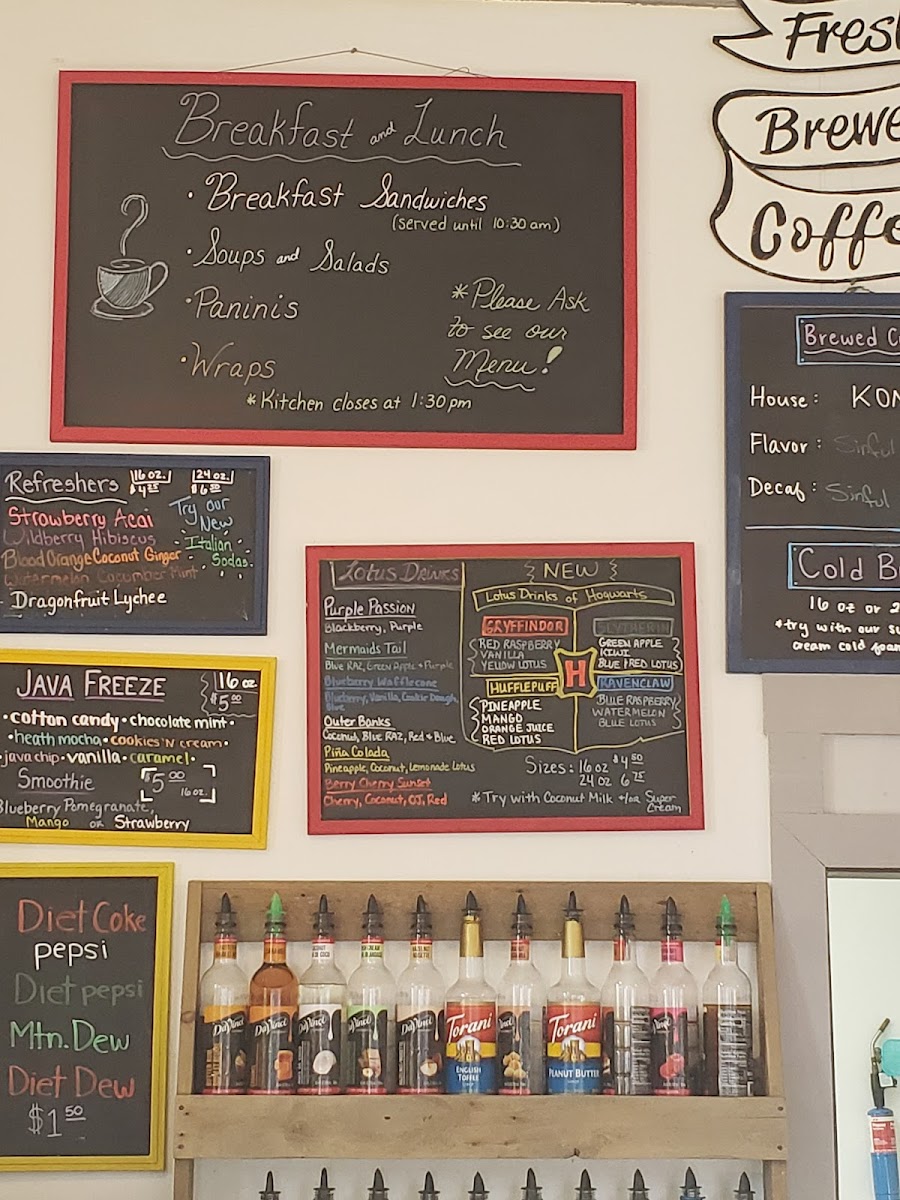 Breakfast and Lunch
• Breakfast Sandwiches
(served until 10:30 am)
• Soups and Salads
• Paninis
• Wraps
*Please Ask
to see our
Menu!
*Kitchen closes at 1:30pm
Fres
Brewe
Coffe
Brewed C
House: KON
Flavor: Sinful
Decaf: Sinful
Cold B
16 oz or 2
*try with our su
cream cold foam
Refreshers 16 oz. 24 oz.
$4.25 $6.50
Strawberry Acai
Wildberry Hibiscus
Blood Orange Coconut Ginger
Watermelon Cucumber Mint
Dragonfruit Lychee
Try our
New
Italian
Sodas.
JAVA FREEZE 16 oz
$5.00
• cotton candy • chocolate mint •
• heath mocha • cookies 'N cream •
java chip • vanilla • caramel •
Smoothie $5.00
16 oz.
Blueberry Pomegranate,
Mango or Strawberry
Lotus Drinks
Purple Passion
Blackberry, Purple
Mermaids Tail
Blue RAZ, Green Apple + Purple
Blueberry Wafflecone
Blueberry, Vanilla, Cookie Dough,
Blue
Outer Banks
Coconut, Blue RAZ, Red + Blue
Piña Colada
Pineapple, Coconut, Lemonade Lotus
Berry Cherry Sunset
Cherry, Coconut, OJ, Red
NEW
Lotus Drinks of Hogwarts
GRYFFINDOR
RED RASPBERRY
VANILLA
YELLOW LOTUS
SLYTHERIN
GREEN APPLE
KIWI
BLUE + RED LOTUS
H
HUFFLEPUFF
PINEAPPLE
MANGO
ORANGE JUICE
RED LOTUS
RAVENCLAW
BLUE RASPBERRY
WATERMELON
BLUE LOTUS
Sizes: 16 oz $4.50
24 oz 6.75
*Try with Coconut Milk +/or Super
Cream
Diet Coke
pepsi
Diet pepsi
Mtn. Dew
Diet Dew
$1.50
DaVinci
DaVinci
DaVinci
DaVinci
DaVinci
Torani
ENGLISH
TOFFEE
Torani
PEANUT BUTTER